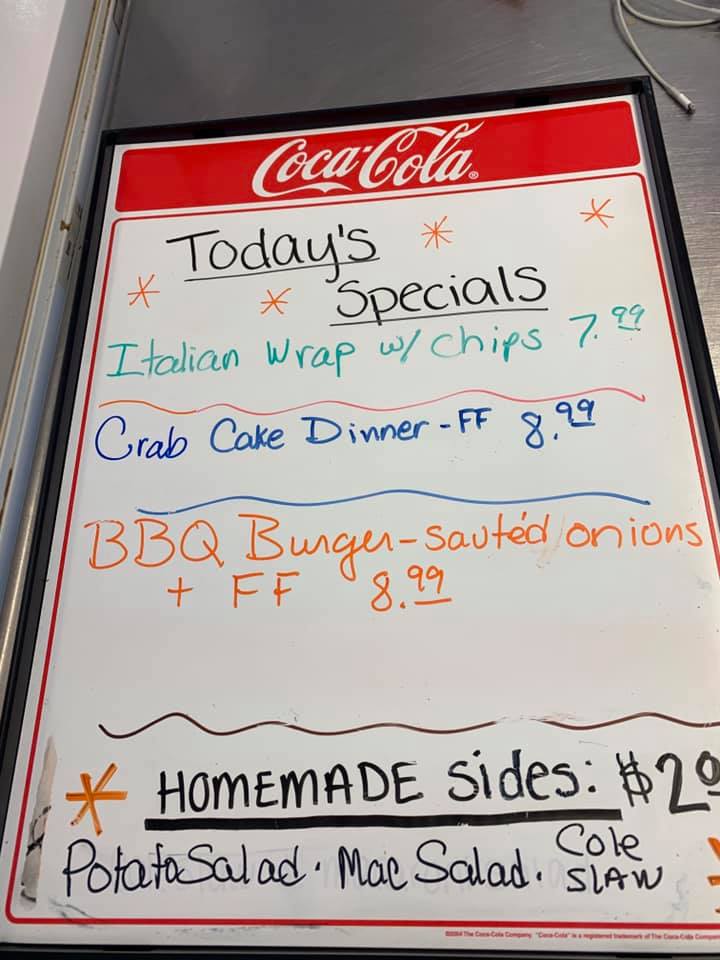 Coca-Cola®
Today's
Specials
Italian Wrap w/ chips 7.99
Crab Cake Dinner - FF 8.99
BBQ Burger - sautéd onions
+ FF 8.99
HOMEMADE sides: $2
Potato Salad · Mac Salad · Cole
SLAW
©2004 The Coca-Cola Company. "Coca-Cola" is a registered trademark of The Coca-Cola